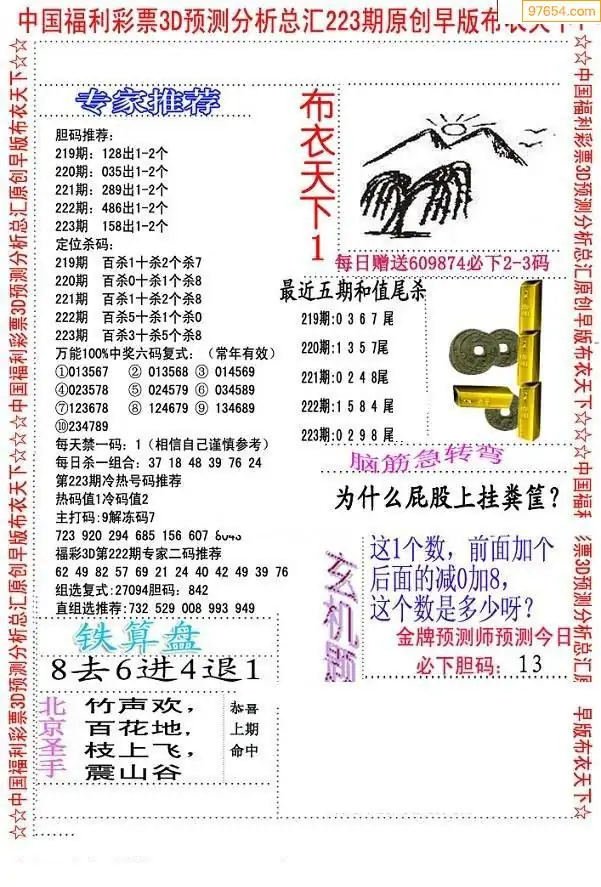 97654.com
中国福利彩票3D预测分析总汇223期原创早版布衣天下
☆☆中国福利彩票3D预测分析总汇原创早版布衣天下☆☆中国福利彩票3D预测分析总汇原创早版布衣天下☆☆
专家推荐
胆码推荐:
219期: 128出1-2个
220期: 035出1-2个
221期: 289出1-2个
222期: 486出1-2个
223期 158出1-2个
定位杀码:
219期 百杀1十杀2个杀7
220期 百杀0十杀1个杀8
221期 百杀1十杀2个杀8
222期 百杀5十杀1个杀0
223期 百杀3十杀5个杀8
万能100%中奖六码复式: (常年有效)
①013567 ② 013568 ③ 014569
④023578 ⑤ 024579 ⑥ 034589
⑦123678 ⑧ 124679 ⑨ 134689
⑩234789
每天禁一码: 1 (相信自己谨慎参考)
每日杀一组合: 37 18 48 39 76 24
第223期冷热号码推荐
热码值1冷码值2
主打码:9解冻码7
723 920 294 685 156 607
福彩3D第222期专家二码推荐
62 49 82 57 69 21 24 40 42 49 39 76
组选复式:27094胆码: 842
直组选推荐:732 529 008 993 949
铁算盘
8去6进4退1
北京圣手
竹声欢,
百花地,
枝上飞,
震山谷
恭喜
上期
命中
布衣天下1
每日赠送609874必下2-3码
最近五期和值尾杀
219期:0 3 6 7 尾
220期:1 3 5 7 尾
221期:0 2 4 8 尾
222期:1 5 8 4 尾
223期:0 2 9 8 尾
脑筋急转弯
为什么屁股上挂粪筐?
玄机题
这1个数, 前面加个
后面的减0加8,
这个数是多少呀?
金牌预测师预测今日
必下胆码: 13
☆☆中国福利彩票3D预测分析总汇原创早版布衣天下☆☆中国福利
彩票3D预测分析总汇原
早版布衣天下☆☆